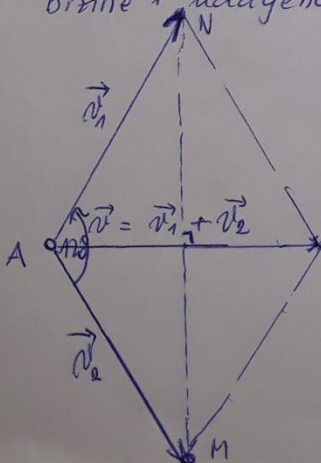 N
v⃗₁
v⃗ = v⃗₁ + v⃗₂
A
120
v⃗₂
M